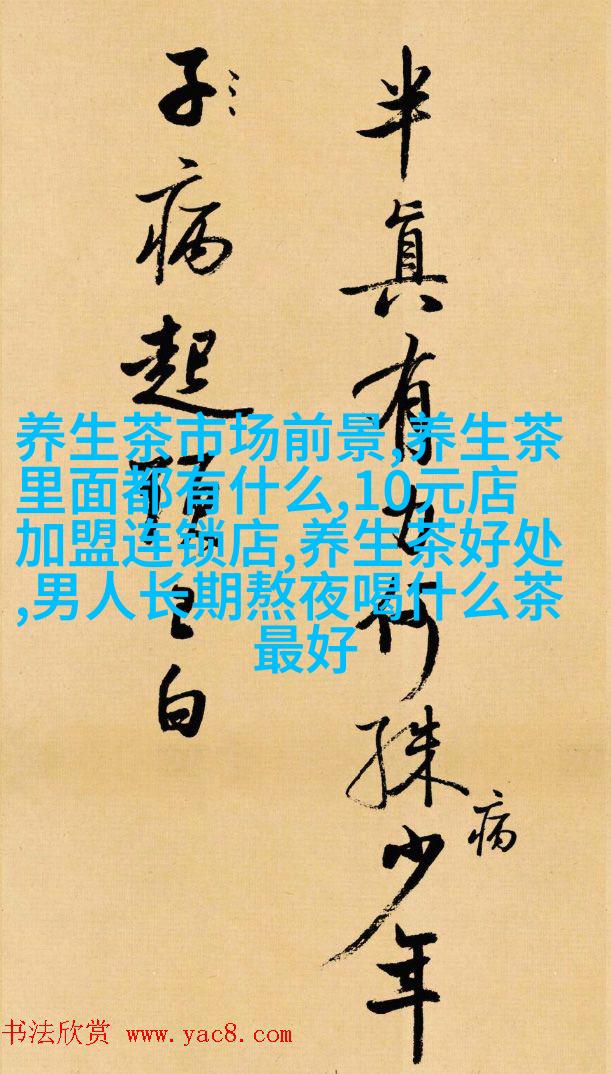 半眞有殊少年
病
子病起白
养生茶市场前景,养生茶
里面都有什么,10元店
加盟连锁店,养生茶好处
,男人长期熬夜喝什么茶
最好
书法欣赏 www.yac8.com